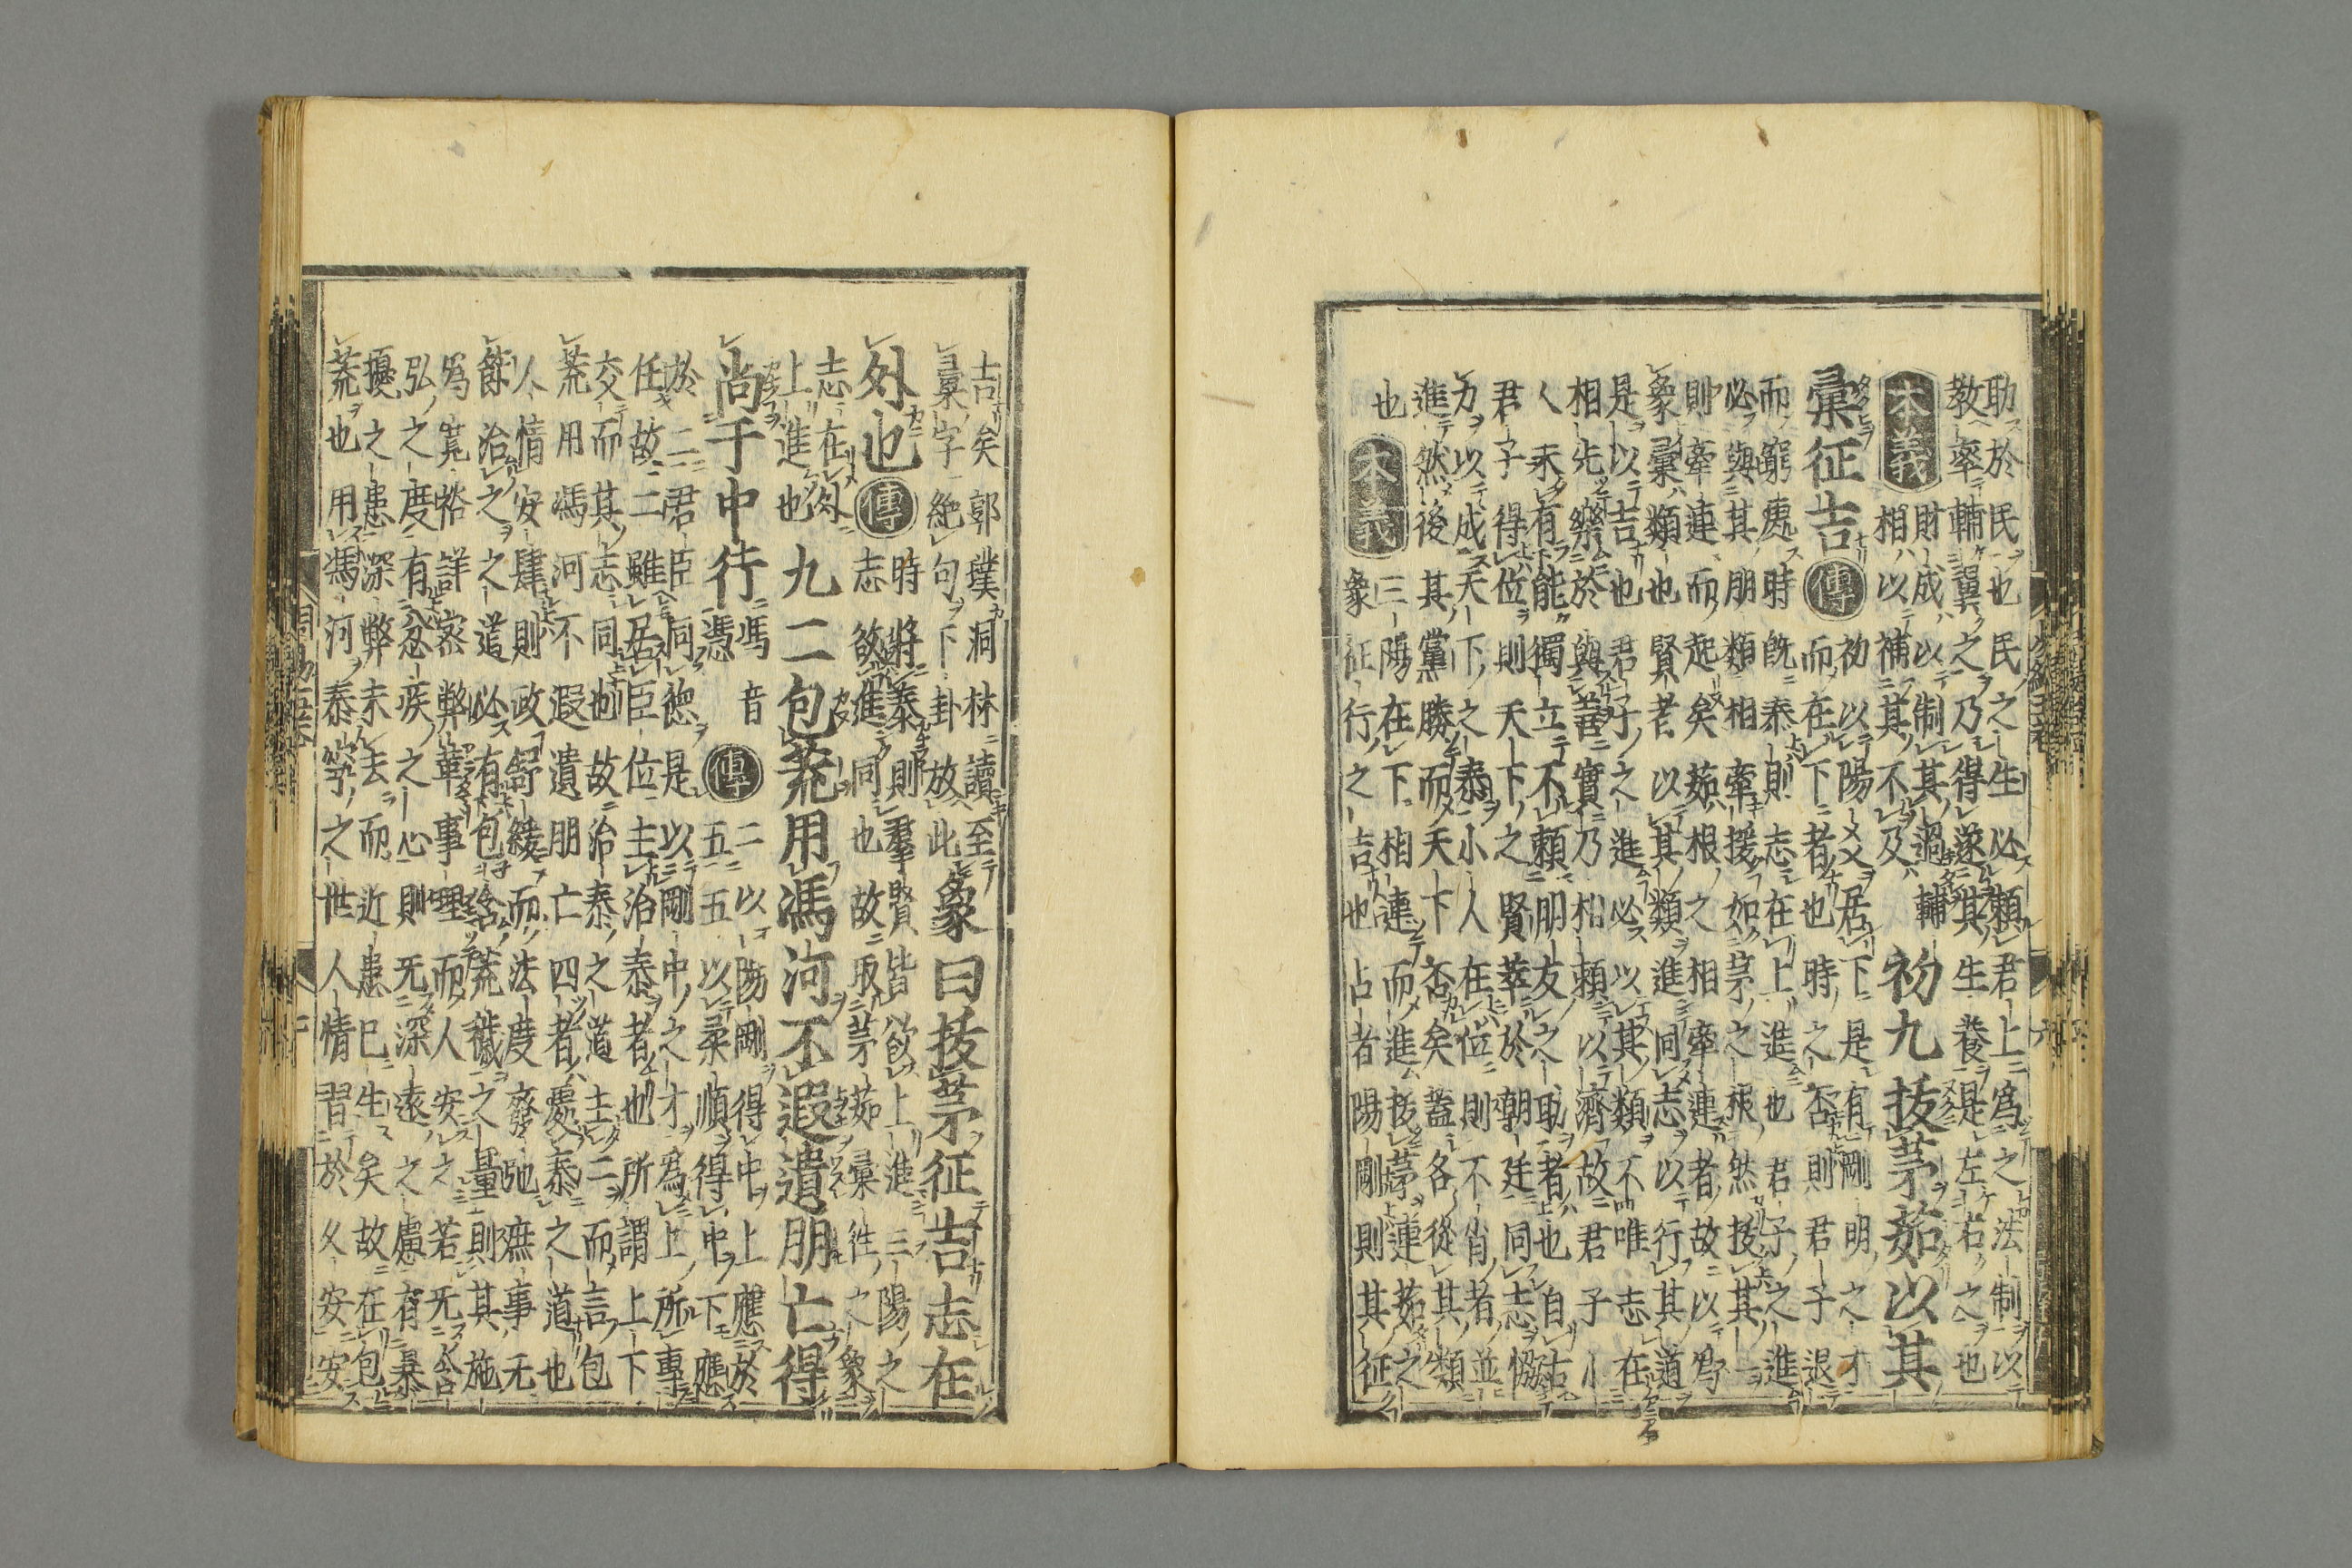 助於民也民之生必賴君上爲之法制以
教率輔翼之乃得遂其生養是左右之也
本義 財成以制其過輔
相以補其不及
初九拔茅茹以其
彙征吉 傳 初以陽爻居下是有剛明之才
而在下者也時之否則君子退
而窮處時既泰則志在上進也君子之進
必與其朋類相牽援如茅之根然拔其一
則牽連而起矣茹根之相牽連者故以爲
象彙類也賢者以其類進同志以行其道
是以吉也君子之進必以其類不唯志在
相先樂於與善實乃相頼以濟故君子小
人未有能獨立不頼朋友之助者也自古
君子得位則天下之賢萃於朝廷同志恊
力以成天下之泰小人在位則不肖者並
進然後其黨勝而天下否矣蓋各從其類
也 本義 三陽在下相連而進拔茅連茹之
象征行之吉也占者陽剛則其征
吉矣郭璞洞林讀至
彙字絶句下卦放此
象曰拔茅征吉志在
外也 傳 時將泰則羣賢皆欲上進三陽之
志欲進同也故取茅茹彙徃之象
志在外
上進也
九二包荒用馮河不遐遺朋亡得
尚于中行 馮音
憑
傳 二以陽剛得中上應於
五五以柔順得中下應
於二君臣同德是以剛中之才爲上所專
任故二雖居臣位主治泰者也所謂上下
交而其志同也故治泰之道主二而言包
荒用馮河不遐遺朋亡四者處泰之道也
人情安肆則政舒緩而法度廢弛庶事无
節治之之道必有包含荒穢之量則其施
爲寛裕詳密弊革事理而人安之若无含
弘之度有忿疾之心則无深遠之慮有暴
擾之患深弊未去而近患已生矣故在包
荒也用馮河泰寧之世人情習於久安安